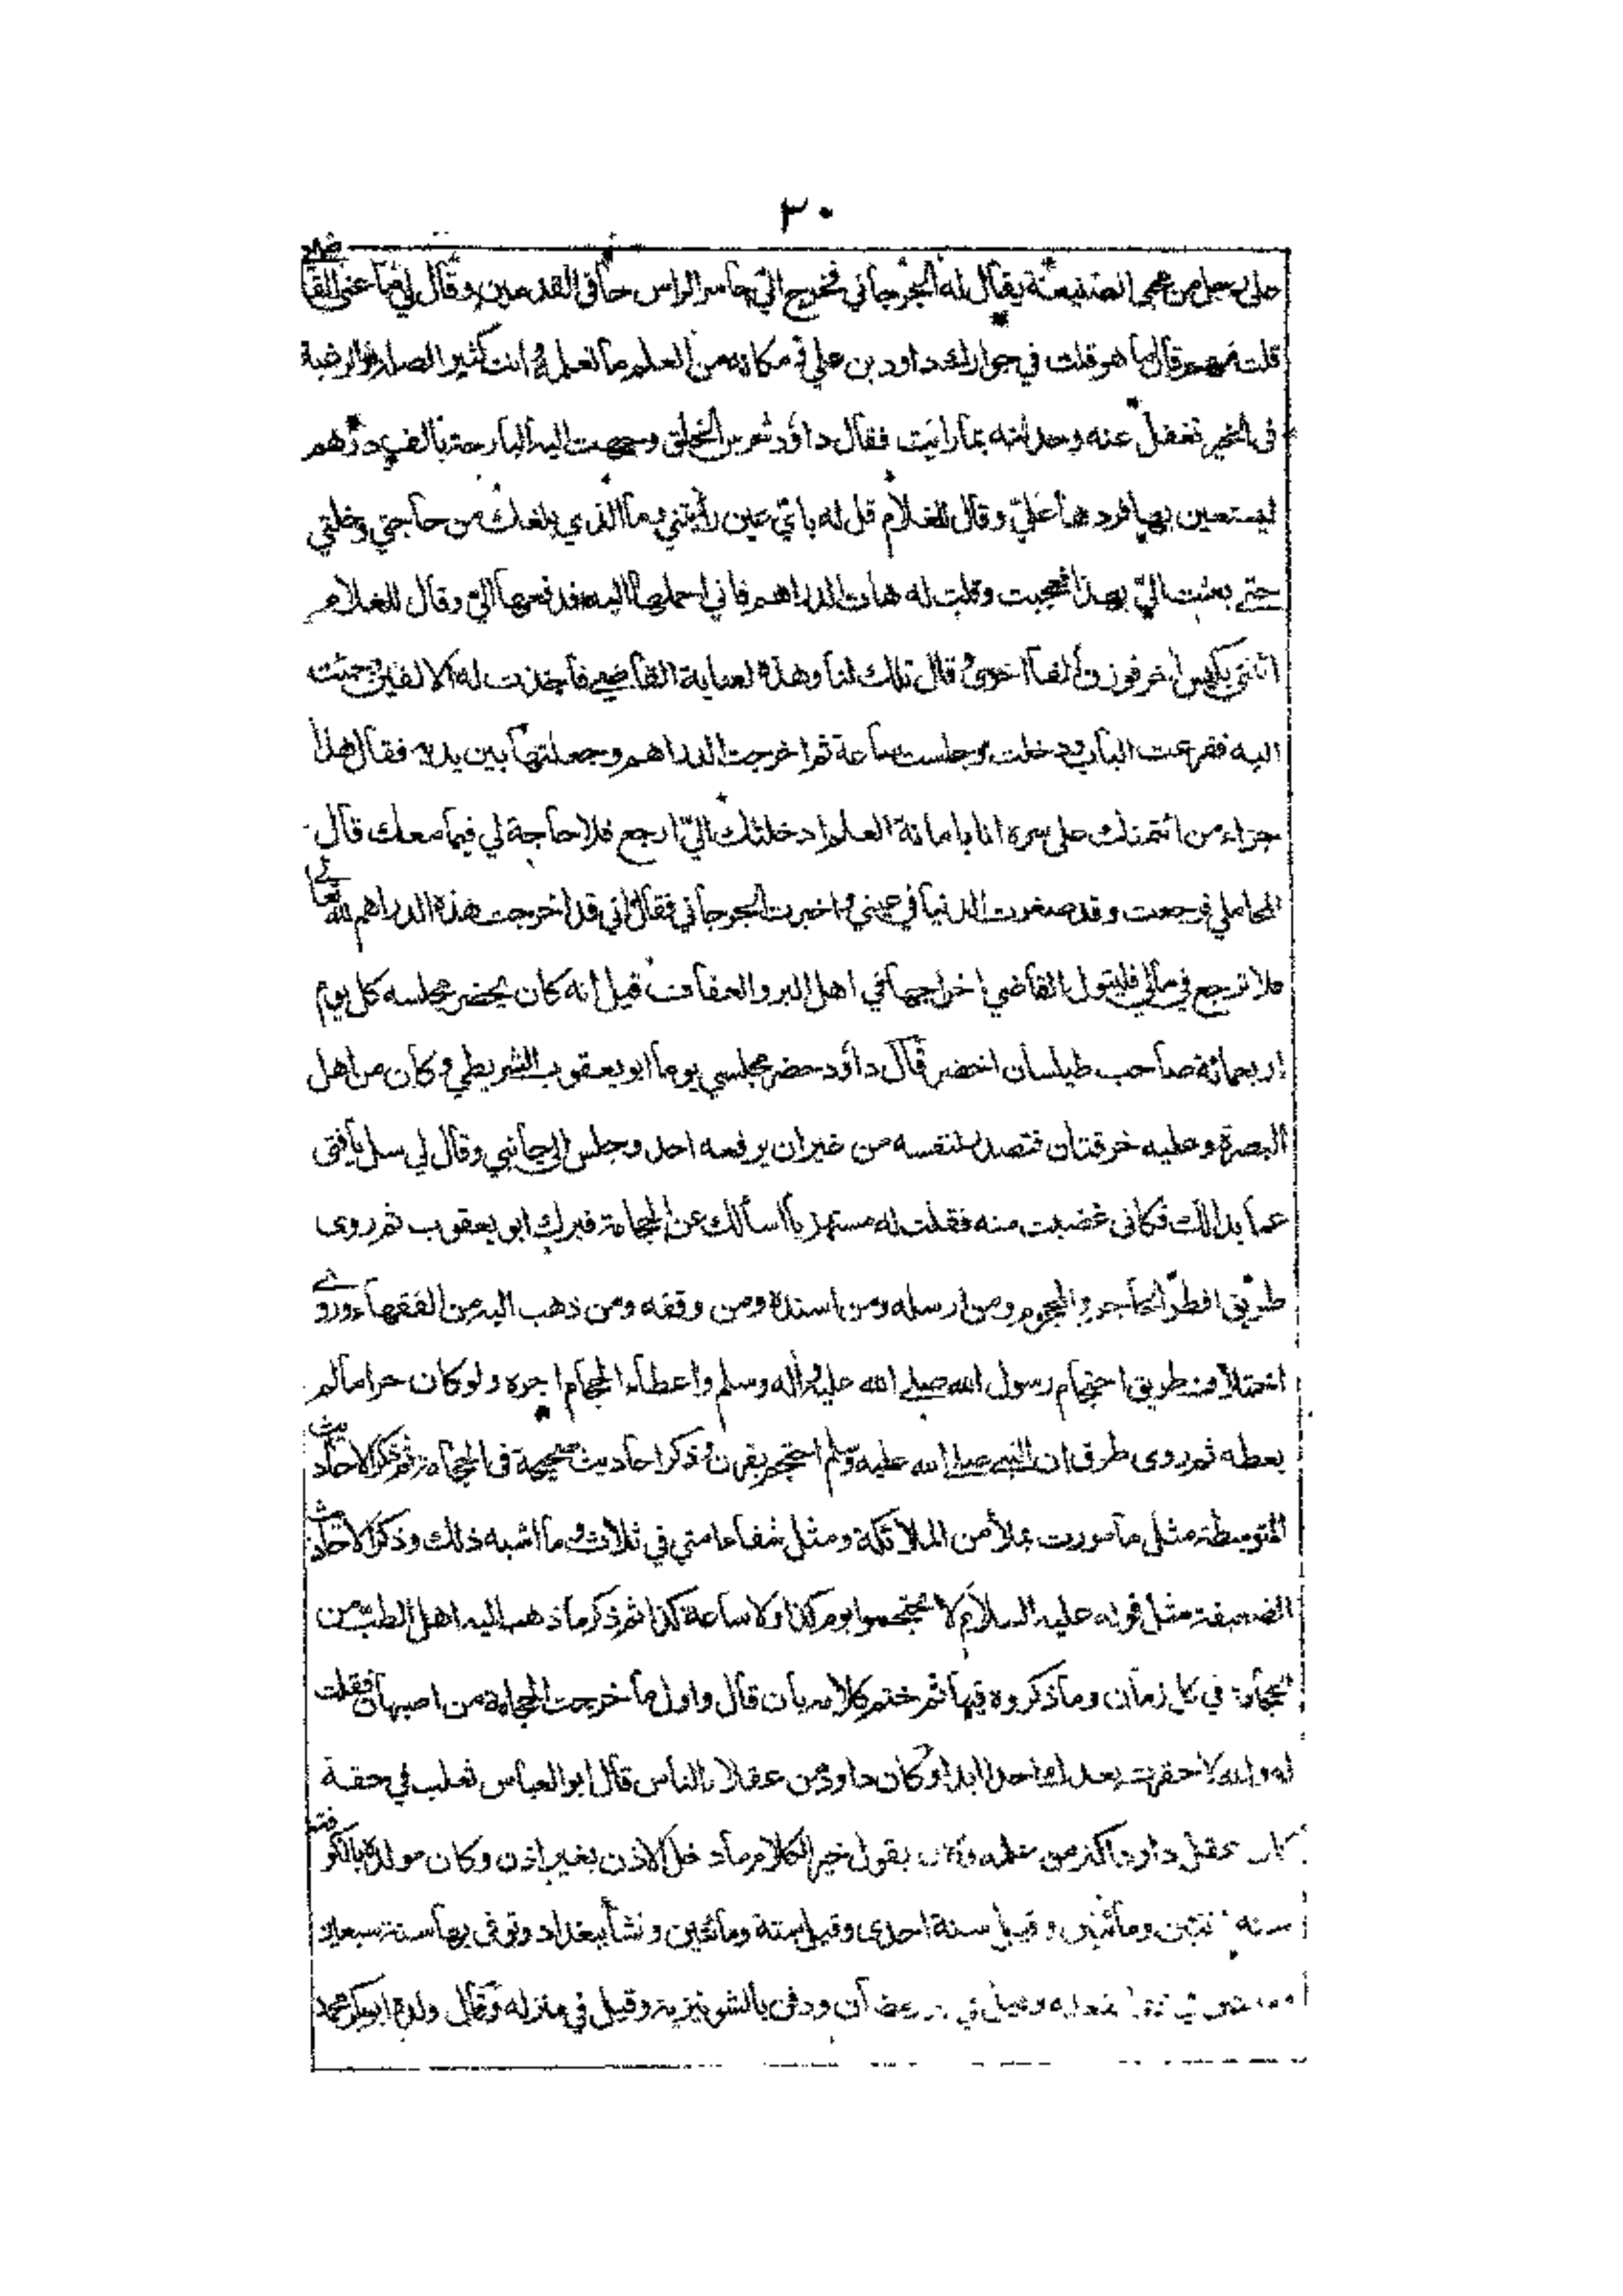 ٣٠
على رجل من محبي الصنيعة يقال له الجرجاني فخرج الي حاسر الراس حافي القدمين وقال لي ما عنى القاضي
قلت مهم قال ما هو قلت في جوارك داود بن علي ومكانه من العلم ما تعلم وانت كثير الصلة والرغبة
في الخير تغفل عنه وحدثته بما رأيت فقال داؤد شرس الخلق وجهت اليه البارحة بالف درهم
ليستعين بها فردها عليّ وقال للغلام قل له باي عين رأيتني وما الذي بلغك من حاجتي وخلتي
حتى بعثت اليّ بهذا فعجبت وقلت له هات الدراهم فاني احملها اليه فدفعها اليّ وقال للغلام
ائتني بكيس آخر فوزن الفا اخرى وقال تلك لنا وهذه لعناية القاضي فاخذت له الالفين وجئت
اليه فقرعت الباب ودخلت وجلست ساعة ثم اخرجت الدراهم وجعلتها بين يديه فقال هذا
جزاء من ائتمنك على سره انا بامانة العلم ادخلتك اليّ ارجع فلا حاجة لي فيما معك قال
المحاملي فرجعت وقد صغرت الدنيا في عيني واخبرت الجرجاني فقال اني قد اخرجت هذه الدراهم لله تعالى
فلا ترجع في مالي فليتول القاضي اخراجها في اهل البر والعفاف قيل انه كان يحضر مجلسه كل يوم
اربعمائة صاحب طيلسان اخضر قال داؤد حضر مجلسي يوما ابو يعقوب الشريطي وكان من اهل
البصرة وعليه خرقتان فتصدر لنفسه من غير ان يرفعه احد وجلس الى جانبي وقال لي سل يا فتى
عما بدالك فكاني غضبت منه فقلت له مستهزيا أسألك عن الحجامة فبرك ابو يعقوب ثم روى
طريق افطر الحاجم والمحجوم ومن ارسله ومن اسنده ومن وقفه ومن ذهب اليه من الفقهاء وروى
اختلاف طريق احتجام رسول الله صلى الله عليه وآله وسلم واعطاء الحجام اجره ولو كان حراما لم
يعطه ثم روى طرق ان النبي صلى الله عليه وسلم احتجم بقرن وذكر احاديث صحيحة في الحجامة ثم ذكر الاحاديث
المتوسطة مثل ما مررت بملأ من الملائكة ومثل شفاء امتي في ثلاث وما اشبه ذلك وذكر الاحاديث
الضعيفة مثل قوله عليه السلام لا تحتجموا يوم كذا ولا ساعة كذا ثم ذكر ما ذهب اليه اهل الطب من
الحجامة في كل زمان وما ذكروه فيها ثم ختم كلامه بان قال واول ما خرجت الحجامة من اصبهان فقلت
له والله لا حقرت بعدك احدا ابدا وكان داود من عقلاء الناس قال ابو العباس ثعلب في حقه
كان عقل داود اكثر من علمه وكان يقول خير الكلام ما دخل الاذن بغير اذن وكان مولده بالكوفة
سنة ومأتين وقيل سنة احدى وقيل ستة ومائتين ونشأ ببغداد وتوفي بها سنة سبعين
ودفن بالشونيزية وقيل في منزله وقال ولده ابو بكر محمد